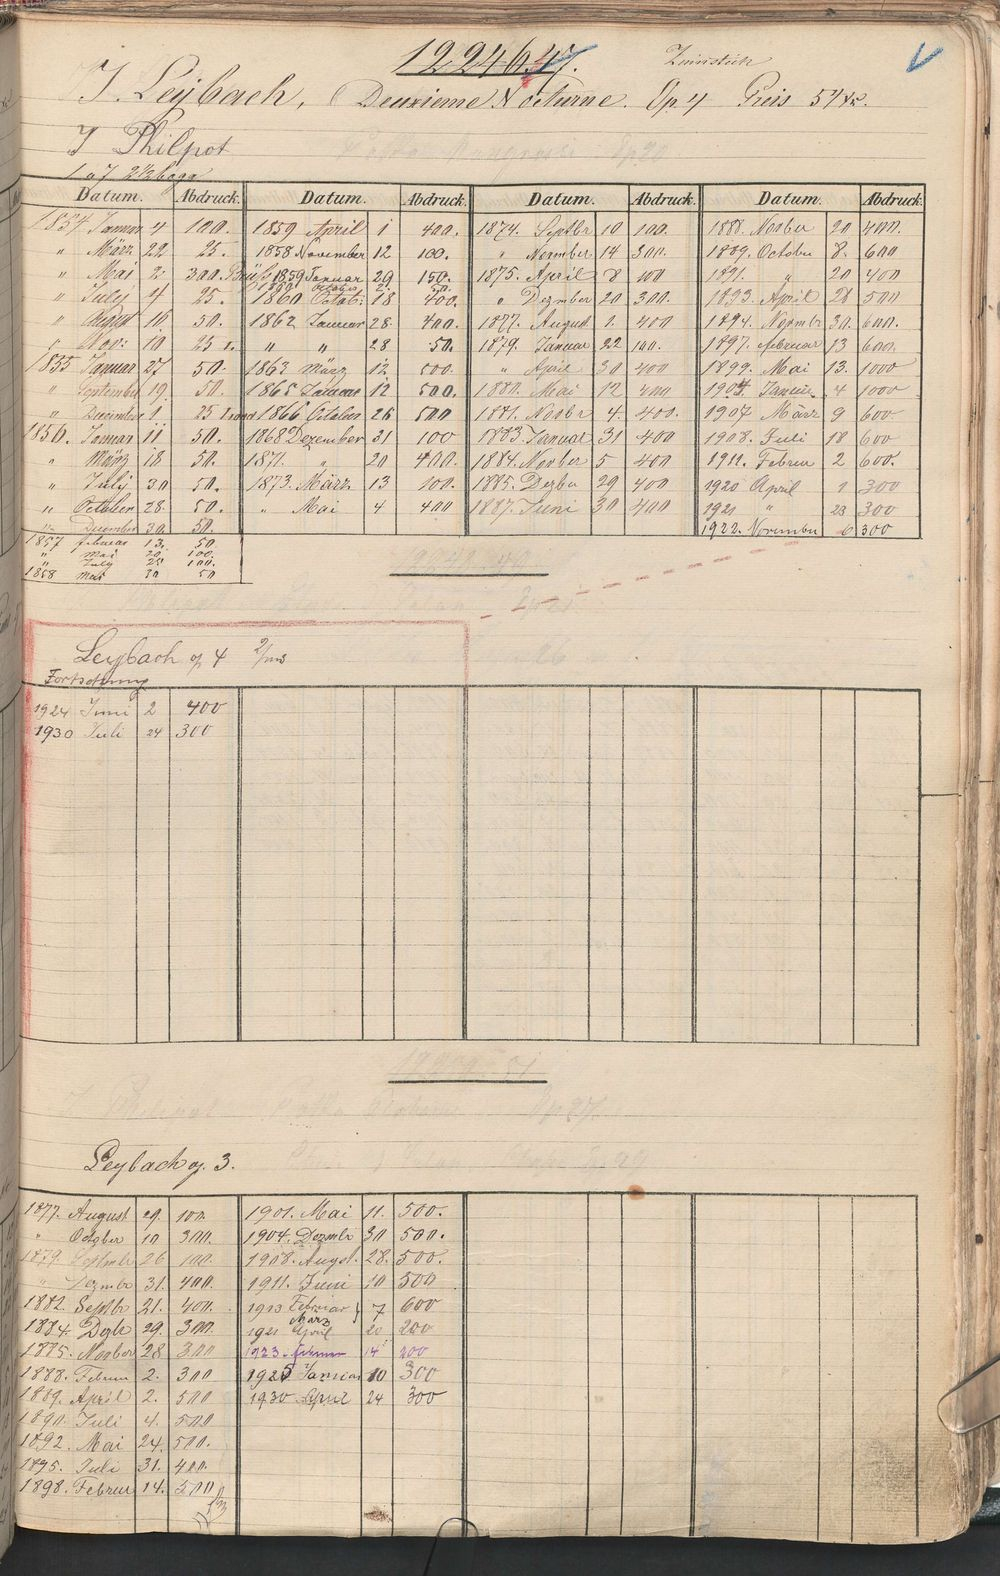 12246.47.
J. Leybach, Deuxieme Nocturne. Op. 4 Preis 54 xr.
J Philpot
Datum. Abdruck. Datum. Abdruck. Datum. Abdruck. Datum. Abdruck.
1854 Januar 4 100. 1859 April 1 400. 1874. Septbr 10 100. 1888. Novbr 20 400.
" März 22 25. 1858 November 12 100. " November 14 300. 1889. October 8. 600
" Mai 2. 300. 1859 Januar 29 150. 1875. April 8 400 1891. " 20 400
" July 4 25. 1860 Octob: 18 400. " Dezmber 20 300. 1893. April 28 500
" August 16. 50. 1862 Januar 28. 400. 1877. August 1. 400 1894. Novmbr 30. 600.
" Nov: 10 25 " " 28 50. 1879. Januar 22 100. 1897. februar 13 600.
1855 Januar 27 50. 1863 März 12 500. " April 30 400 1899. Mai 13. 1000
" September 19. 50. 1865 Januar 12 500. 1880. Mai 12 400 1904. Januar 4 1000
" December 1. 25 1866 October 26 500 1881. Novbr 4. 400. 1907 März 9 600.
1856. Januar 11 50. 1868 Dezember 31 100 1883. Januar 31 400 1908. Juli 18 600
" März 18 50. 1871. " 20 400. 1884. Novber 5 400 1911. Februr 2 600.
" July 30 50. 1873. März 13 100. 1885. Dezbr 29 400 1920 April 1 300
" October 28. 50. " Mai 4 400 1887. Juni 30 400 1921 " 23 300
" December 30. 50. 1922. November 6 300
1857 februar 13. 50.
" Mai 20. 100.
" July 25. 100.
1858 Mai 30 50
Leybach op 4
Fortsetzung
1924 Juni 2 400
1930 Juli 24 300
Leybach op. 3.
1877. August 29. 100. 1901. Mai 11. 500.
" Octber 10 300. 1904. Dezmbr 30 500.
1879. Septmbr 26 100. 1908. Augst. 28. 500.
" Dezmbr 31. 400. 1911. Juni 10 500
1882. Septbr 21. 400. 1913 Februar 7 600
März
1884. Dezbr 29. 300. 1921 April 20 200
1885. Novber 28 300 1923. februar 14 200
1888. Februr 2. 300 1925 Januar 10 300
1889. April 2. 500 1930 April 24 300
1890. Juli 4. 500
1892. Mai 24. 500.
1895. Juli 31. 400.
1898. Februr 14. 500